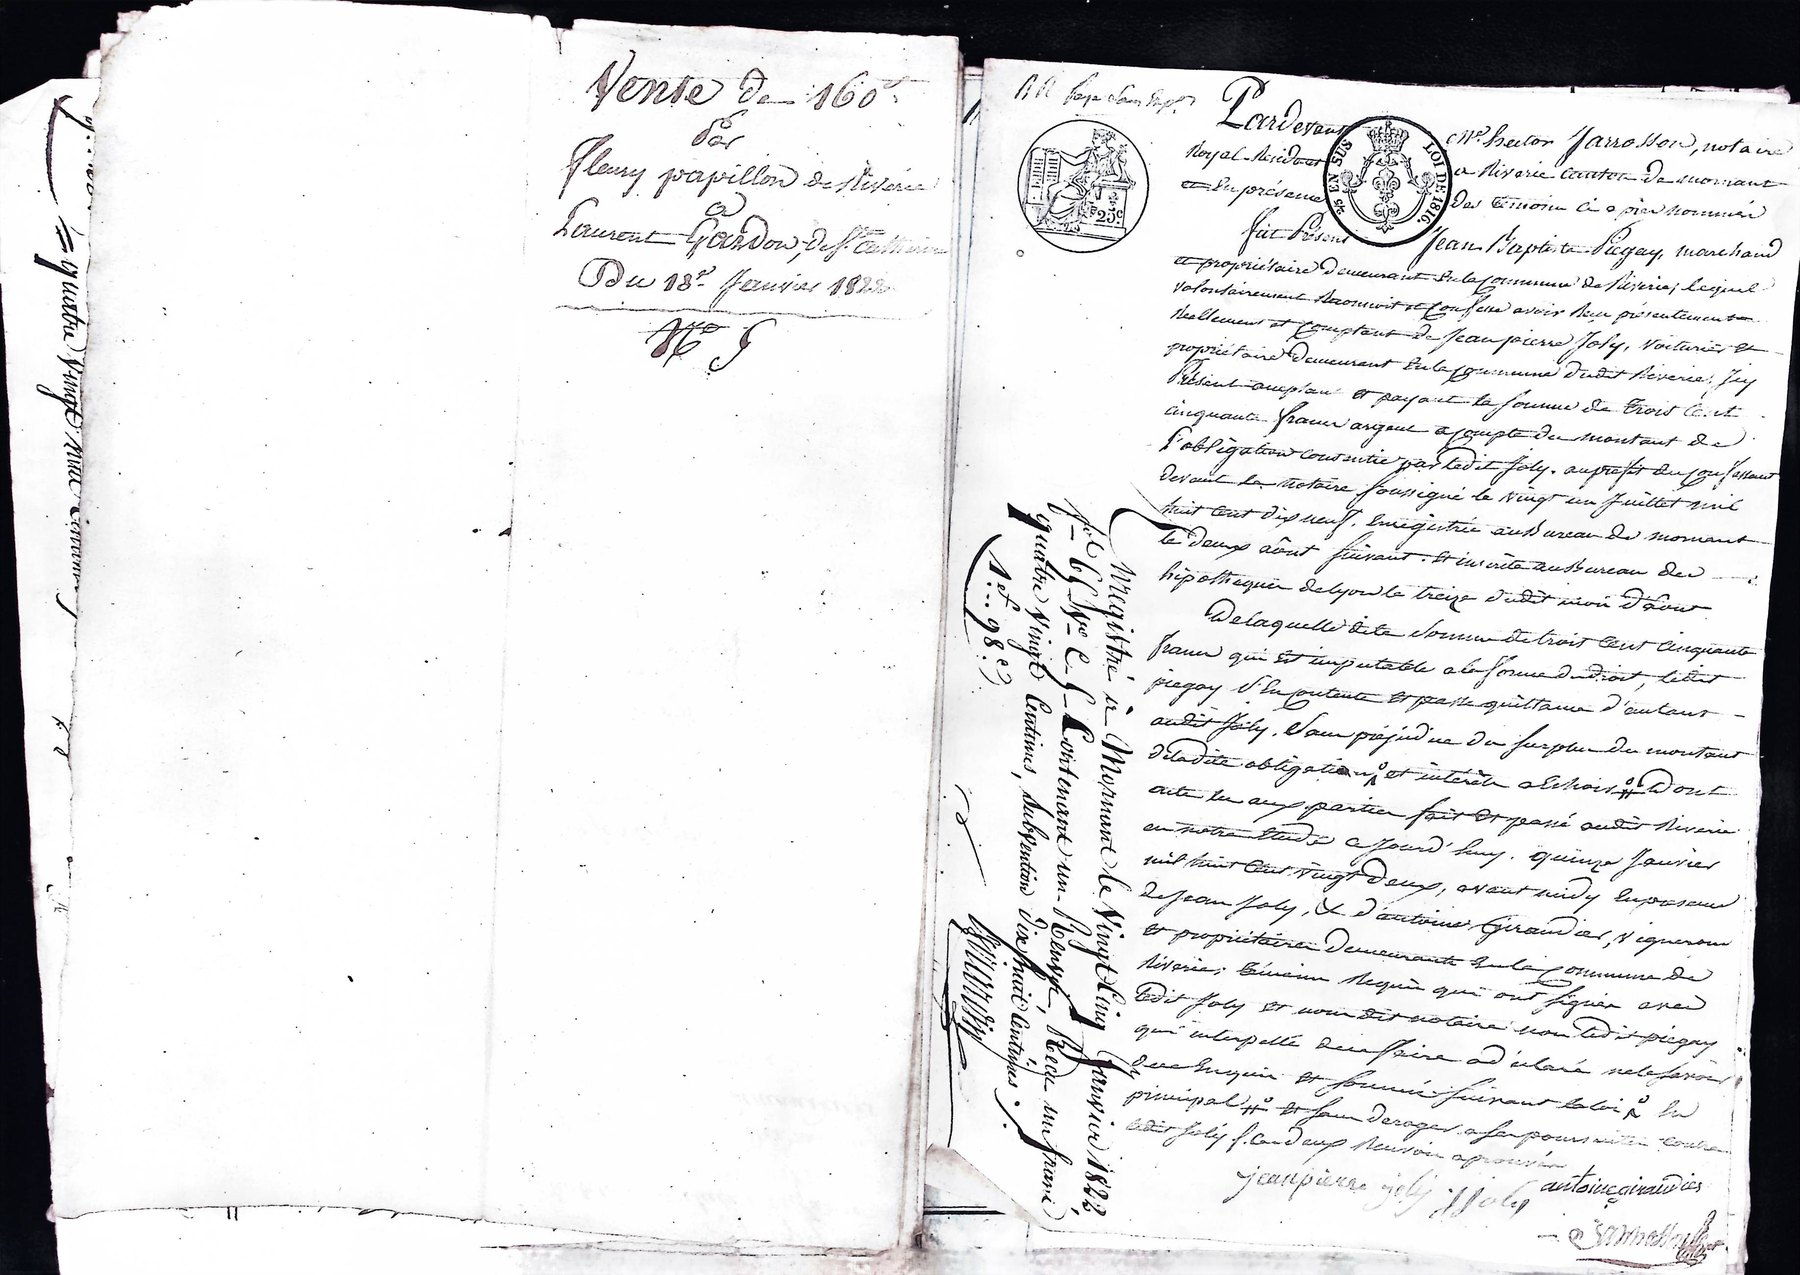 Vente de 160 f.
Par
fleury papillon de Riverie
a
Laurent Gardon, de Ste Catherine
Du 18e Janvier 1822
No 9
Pardevant Me hector Jarrosson, notaire
Royal Résidant a Riverie canton de mornant
et En présence des temoins ci apres nommés
fut Présent Jean Baptiste Piegay, marchand
et propriétaire demeurant En la Commune de Riverie; lequel
volontairement Reconnoit et Confesse avoir Reçu présentement
Réellement et Comptant de Jean pierre Joly, voiturier et
propriétaire demeurant En la Commune dudit Riverie; Icy
Présent acceptant et payant la somme de trois Cent
cinquante francs argent a compte du montant de
l'obligation consentie par ledit Joly. au profit du Confessant
devant le notaire soussigné le vingt un Juillet mil
huit Cent dix neuf. Enregistrée au Bureau de mornant
le deux aôut suivant. et inscrite au Bureau des
hipotheques de lyon le treize dudit mois d'aôut
De laquelle dite somme de trois Cent Cinquante
francs qui est imputable a la forme du droit, ledit
piegay s'En Contente et passe quittance d'autant
audit Joly, sans préjudice du surplus du montant
de ladite obligation et intérêts a Echoir Dont
acte lu aux parties fait et passé audit Riverie
en notre Etude ce Jourd'huy. quinze Janvier
mil huit Cent vingt deux, avant midy En présence
de Jean Joly, & d'antoine Giraudier, vignerons
et propriétaires demeurants En la Commune de
Riverie; témoins Requis qui ont signés avec
ledit Joly et nous dit notaire non ledit piégay
qui interpellé de ce faire a déclaré ne le savoir
de ce Enquis et sommé suivant la loi En
principal et sans deroger a ses poursuites contre
ledit Joly f. Ces deux Renvois aprouvés
jeanpierre joly JJoly antoine giraudier
Jarrosson
Enregistré à Mornant le Vingt Cinq Janvier 1822
fo 66 Vo C 9 Contenant un Renvoi, Reçu un franc
quatre Vingt Centimes, subvention dix huit Centimes.
1 f 98 c
LOI DE 1816.
EN SUS
25c